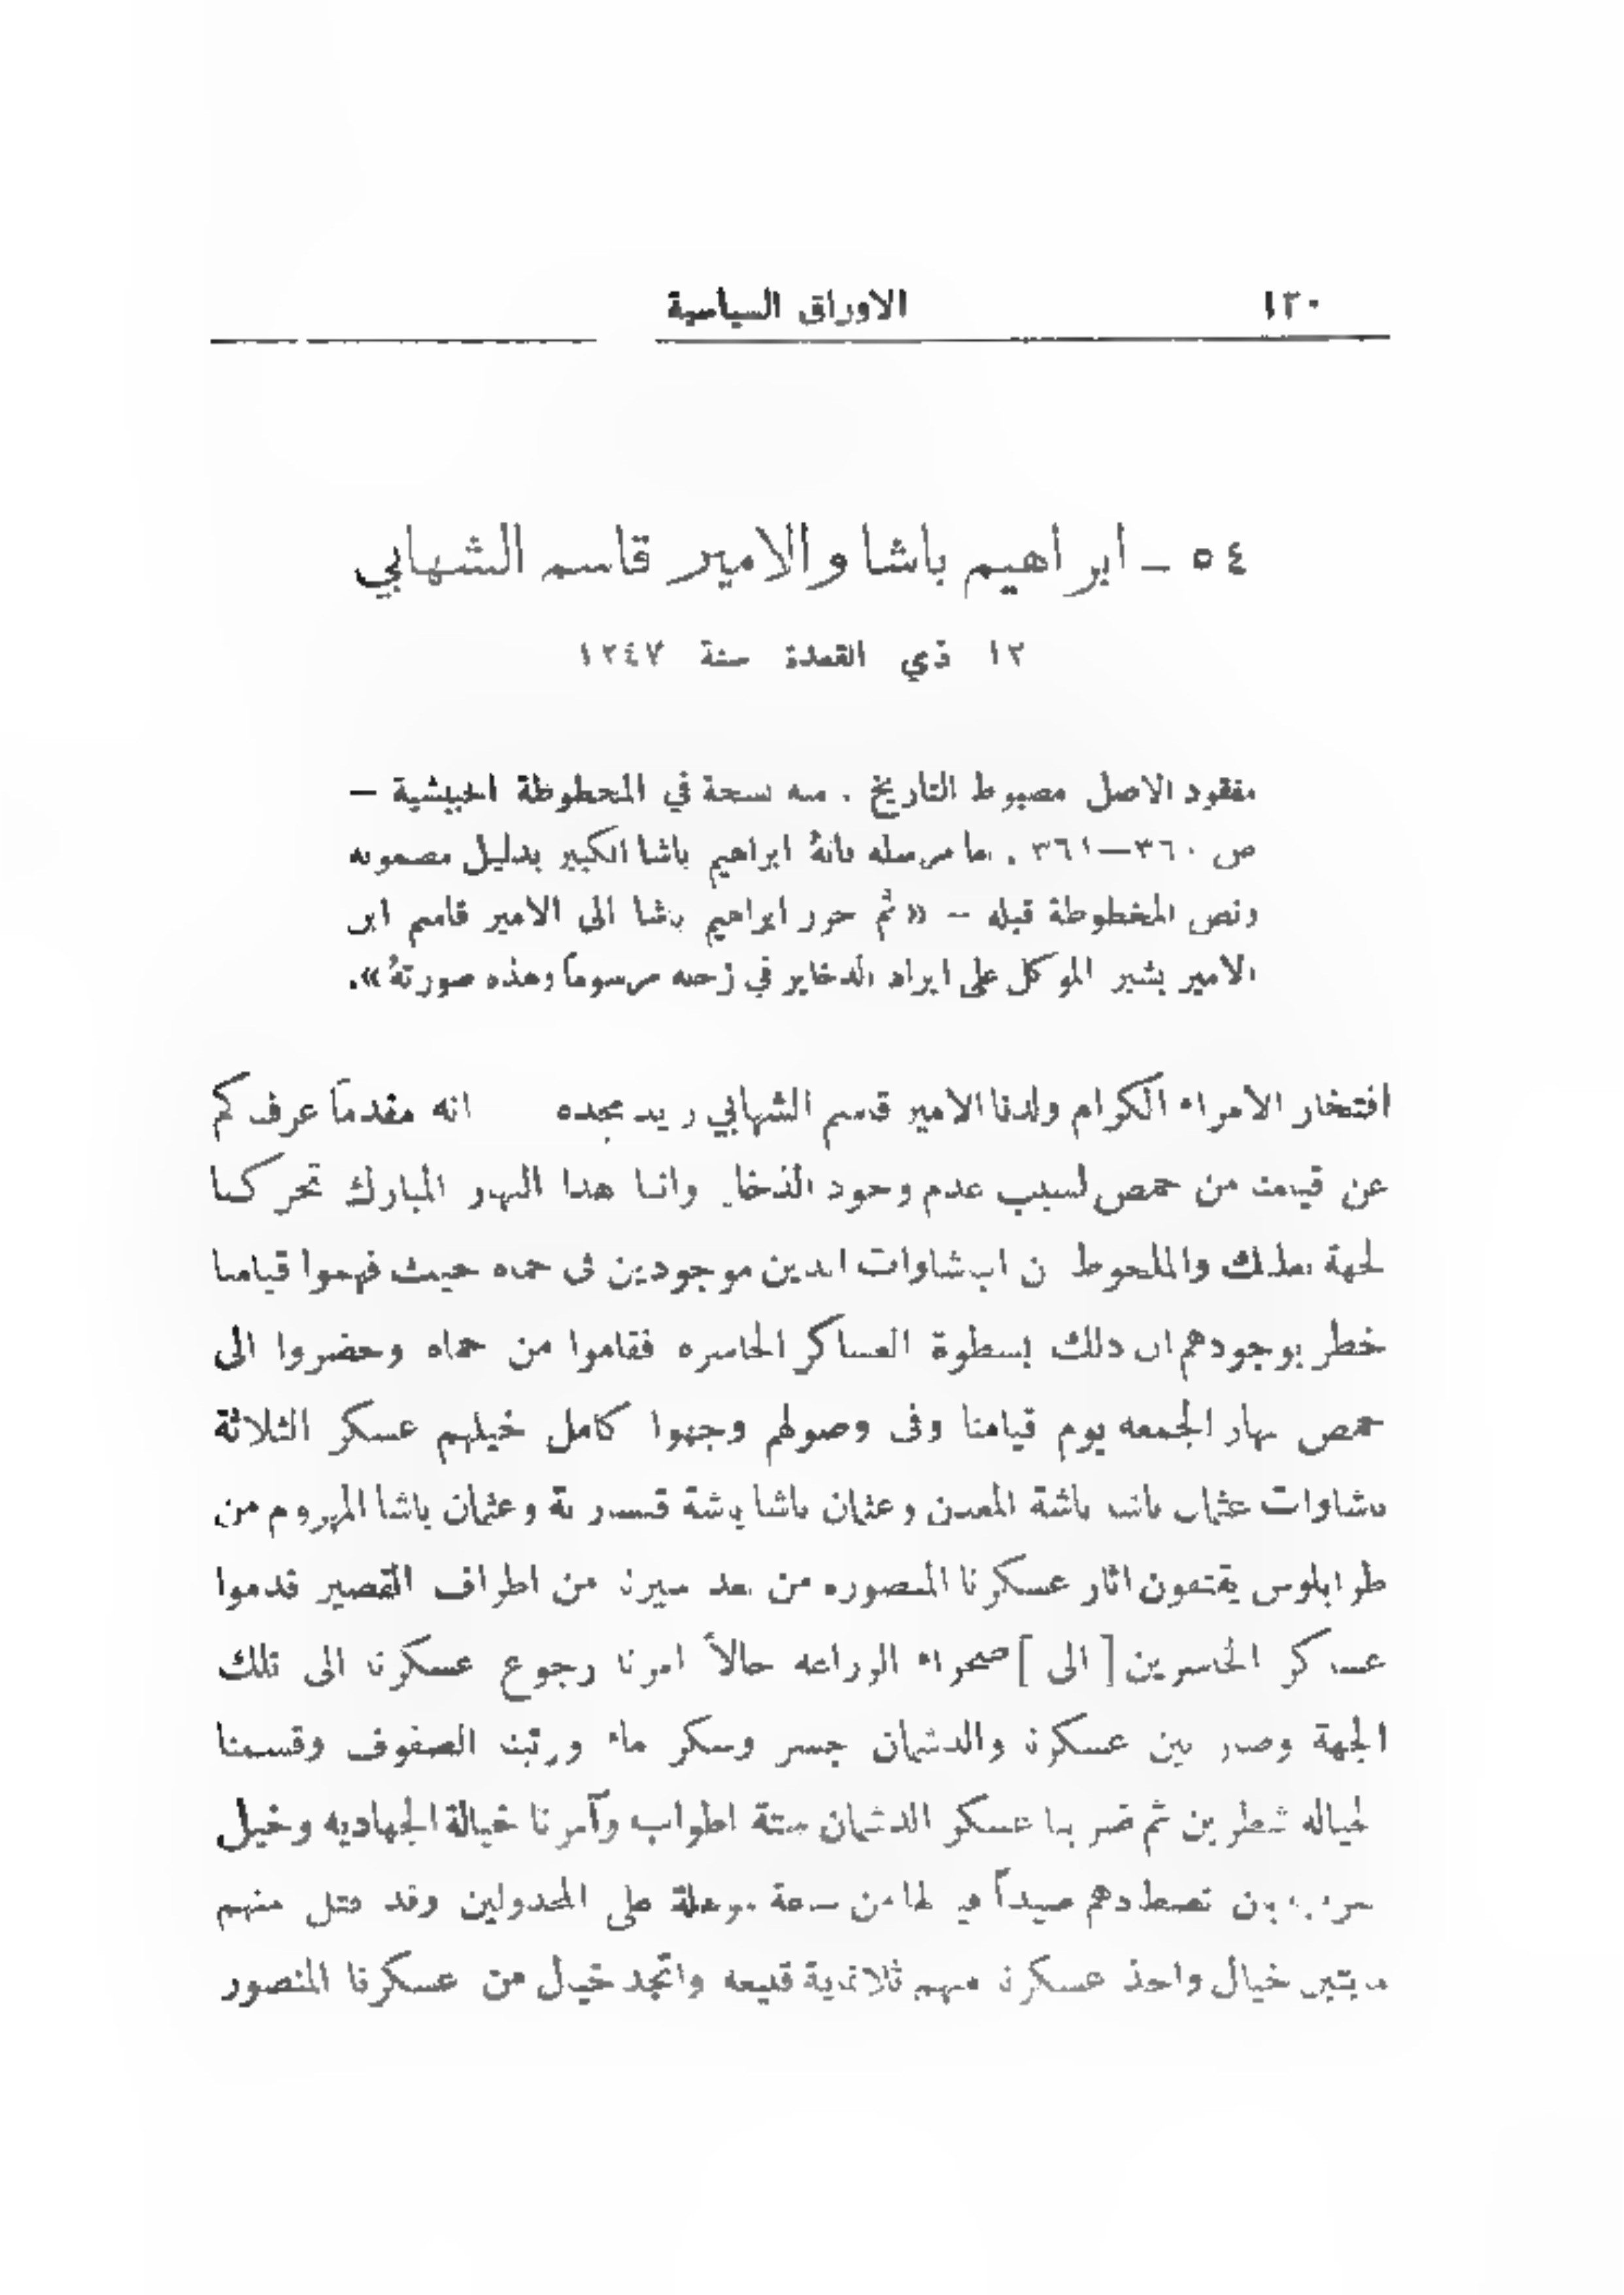 ١٣٠ الاوراق السياسية
٥٤ – ابراهيم باشا والامير قاسم الشهابي
١٢ ذي القعدة سنة ١٢٤٧
مفقود الاصل مضبوط التاريخ . منه نسخة في المخطوطة الحبيشية –
ص ٣٦٠–٣٦١ . اما مرسله فانهُ ابراهيم باشا الكبير بدليل مضمونه
ونص المخطوطة قبله – «ثم حرر ابراهيم باشا الى الامير قاسم ابن
الامير بشير الموكل على ايراد الدخاير في زحله مرسوماً وهذه صورتهُ».
افتخار الامراء الكرام ولدنا الامير قاسم الشهابي زيد مجده انه مقدماً عرفناكم
عن قيامنا من حمص لسبب عدم وجود الذخاير واننا هذا النهار المبارك تحركنا
لجهة بعلبك والملحوظ ان الباشاوات الدين موجودين في حماه حيث فهموا قيامنا
خطر بوجودهم ان دلك بسطوة العساكر الخاسره فقاموا من حماه وحضروا الى
حمص نهار الجمعه يوم قيامنا وفى وصولهم وجهوا كامل خيلهم عسكر الثلاثة
باشاوات عثمان باشا باشة المعدن وعثمان باشا باشة قيسارية وعثمان باشا المهزوم من
طرابلوس يقتفون اثار عسكرنا المنصوره من بعد مسيرنا من اطراف القصير قدموا
عساكر الخاسرين [الى] صحراء الزراعه حالاً امرنا رجوع عسكرنا الى تلك
الجهة وصار بين عسكرنا والدشمان جسر وسكر ماء ورتبنا الصفوف وقسمنا
الخياله شطرين ثم ضربنا عسكر الدشمان ستة اطواب وآمرنا خيالة الجهاديه وخيل
تصطادهم صيداً من ساعة على المخدولين وقد قتل منهم
مايتين خيال واخذ عسكرنا منهم ثلاثماية قليعه واتجد خيل من عسكرنا المنصور